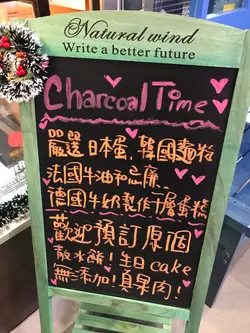 Natural wind
Write a better future
Charcoal Time
嚴選日本蛋、韓國麵粉
法國牛油和忌廉、
德國牛奶製作千層蛋糕
歡迎預訂原個
散水餅！生日cake
無添加！真果肉！